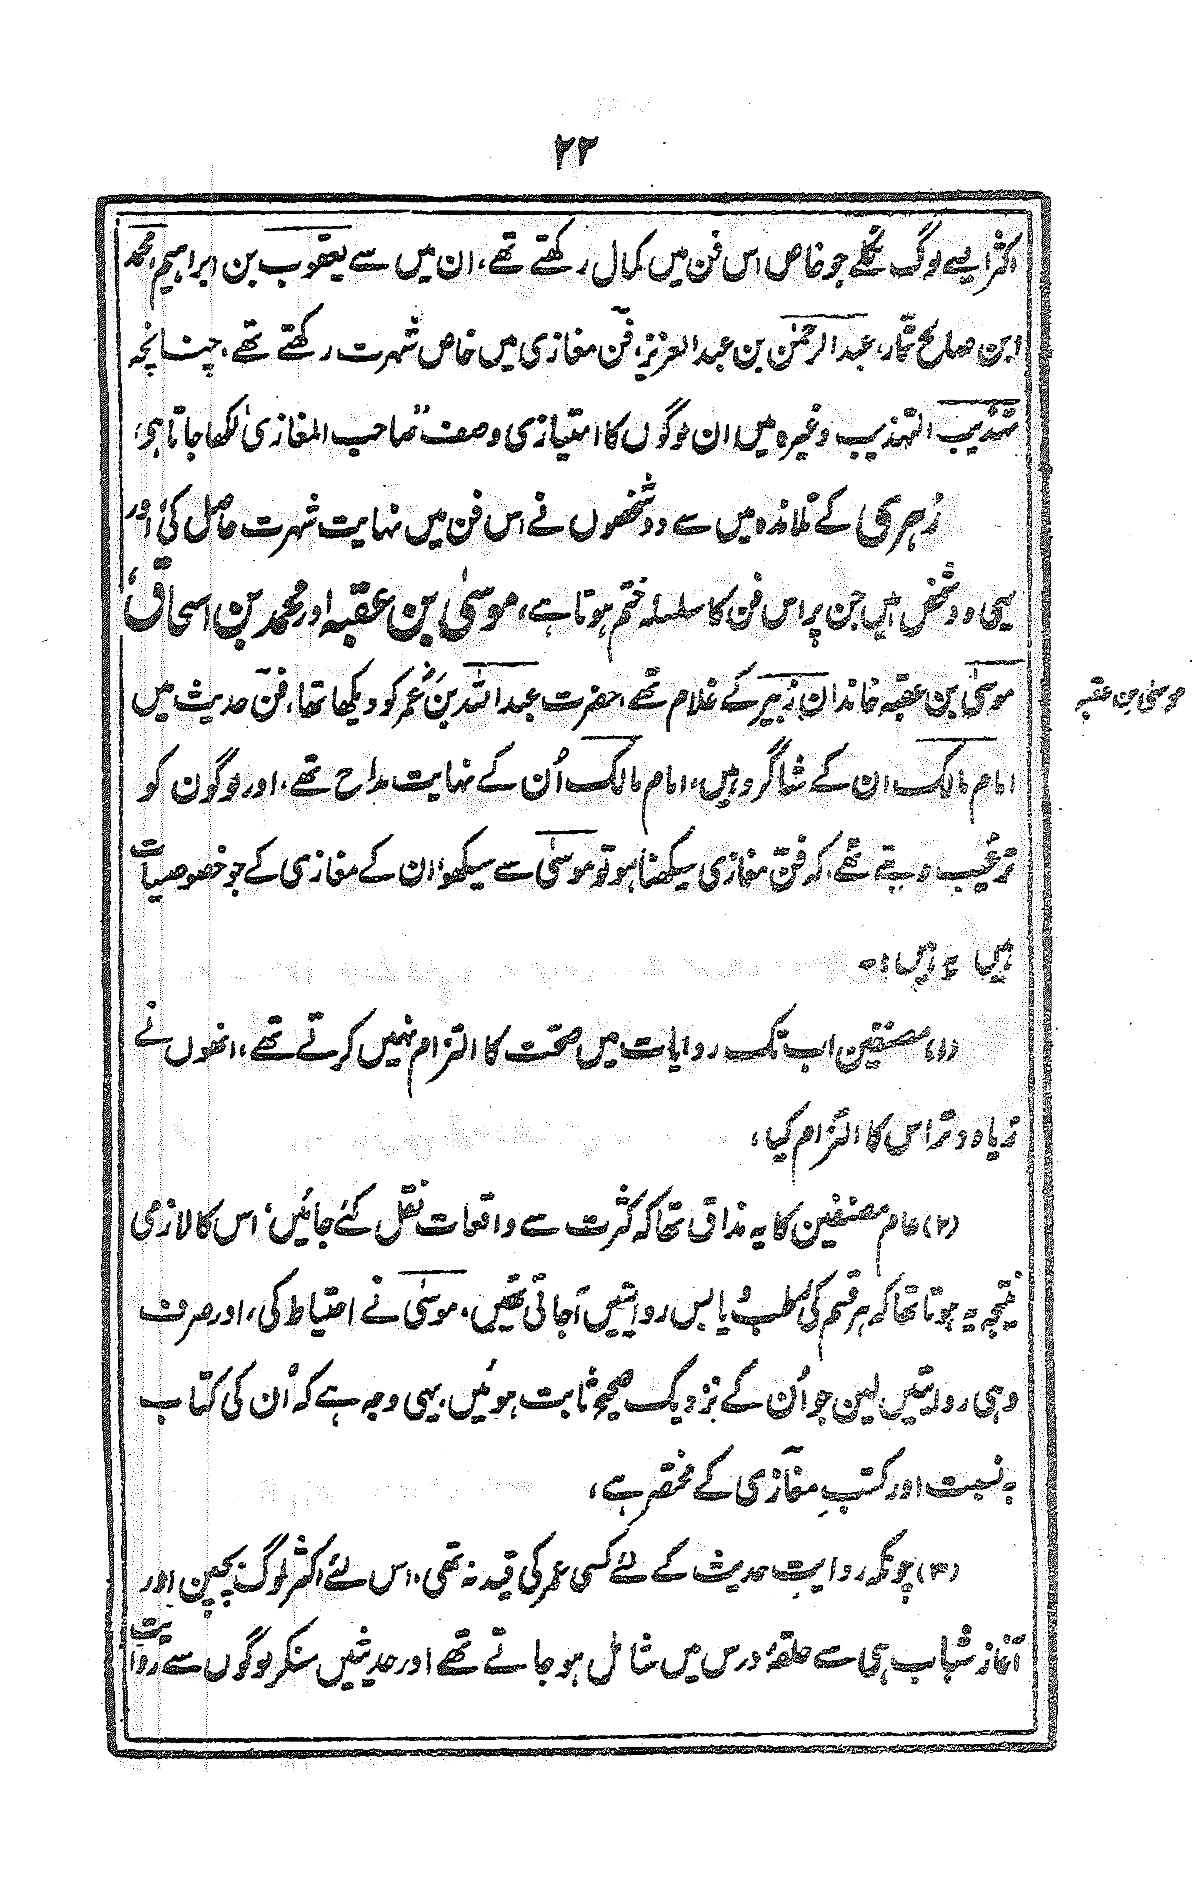 ۲۲
اکثر ایسے لوگ نکلے جو خاص اس فن میں کمال رکھتے تھے، ان میں سے یعقوب بن ابراہیم، محمد
ابن صالح تمار، عبد الرحمٰن بن عبد العزیز، فنِّ مغازی میں خاص شہرت رکھتے تھے، چنانچہ
تہذیب التہذیب وغیرہ میں ان لوگوں کا امتیازی وصف "صاحب المغازی" لکھا جاتا ہی،
زہری کے تلامذہ میں سے دو شخصوں نے اس فن میں نہایت شہرت حاصل کی، اور
یہی دو شخص ہیں جن پر اس فن کا سلسلہ ختم ہوتا ہے، موسیٰ بن عقبہ اور محمد بن اسحاق،
موسیٰ بن عقبہ خاندانِ زبیر کے غلام تھے، حضرت عبد اللہ بن عمر کو دیکھا تھا، فنِّ حدیث میں
موسیٰ بن عقبہ
امام مالک ان کے شاگرد ہیں، امام مالک اُن کے نہایت مداح تھے، اور لوگون کو
ترغیب دیتے تھے، کہ فنِّ مغازی سیکھنا ہو تو موسیٰ سے سیکھو، ان کے مغازی کے جو خصوصیات
ہیں یہ ہیں:-
(۱) مصنفین اب تک روایات میں صحّت کا التزام نہیں کرتے تھے، انھوں نے
زیادہ تر اس کا التزام کیا،
(۲) عام مصنفین کا یہ مذاق تھا کہ کثرت سے واقعات نقل کئے جائیں، اس کا لازمی
نتیجہ یہ ہوتا تھا کہ ہر قسم کی رطب و یابس روایتیں آجاتی تھیں، موسیٰ نے احتیاط کی، اور صرف
وہی روایتیں لین جو اُن کے نزدیک صحیح ثابت ہوئیں، یہی وجہ ہے کہ اُن کی کتاب
بہ نسبت اور کتبِ مغازی کے مختصر ہے،
(۳) چونکہ روایت حدیث کے لئے کسی عمر کی قید نہ تھی، اس لئے اکثر لوگ بچپن اور
آغاز شباب ہی سے حلقۂ درس میں شامل ہو جاتے تھے اور حدیثیں سنکر لوگوں سے روایت